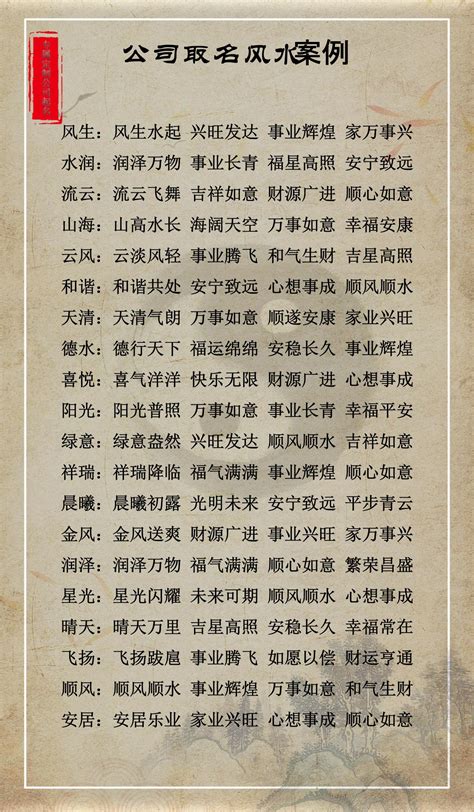 公司取名风水案例
风生：风生水起 兴旺发达 事业辉煌 家万事兴
水润：润泽万物 事业长青 福星高照 安宁致远
流云：流云飞舞 吉祥如意 财源广进 顺心如意
山海：山高水长 海阔天空 万事如意 幸福安康
云风：云淡风轻 事业腾飞 和气生财 吉星高照
和谐：和谐共处 安宁致远 心想事成 顺风顺水
天清：天清气朗 万事如意 顺遂安康 家业兴旺
德水：德行天下 福运绵绵 安稳长久 事业辉煌
喜悦：喜气洋洋 快乐无限 财源广进 心想事成
阳光：阳光普照 万事如意 事业兴旺 幸福平安
绿意：绿意盎然 兴旺发达 顺风顺水 吉祥如意
祥瑞：祥瑞降临 福气满满 事业辉煌 顺心如意
晨曦：晨曦初露 光明未来 安宁致远 平步青云
金风：金风送爽 财源广进 事业兴旺 家万事兴
润泽：润泽万物 福气满满 顺心如意 繁荣昌盛
星光：星光闪耀 未来可期 顺风顺水 心想事成
晴天：晴天万里 吉星高照 安稳长久 幸福常在
飞扬：飞扬跋扈 事业腾飞 如愿以偿 财运亨通
顺风：顺风顺水 事业辉煌 万事如意 和气生财
安居：安居乐业 家业兴旺 心想事成 顺心如意